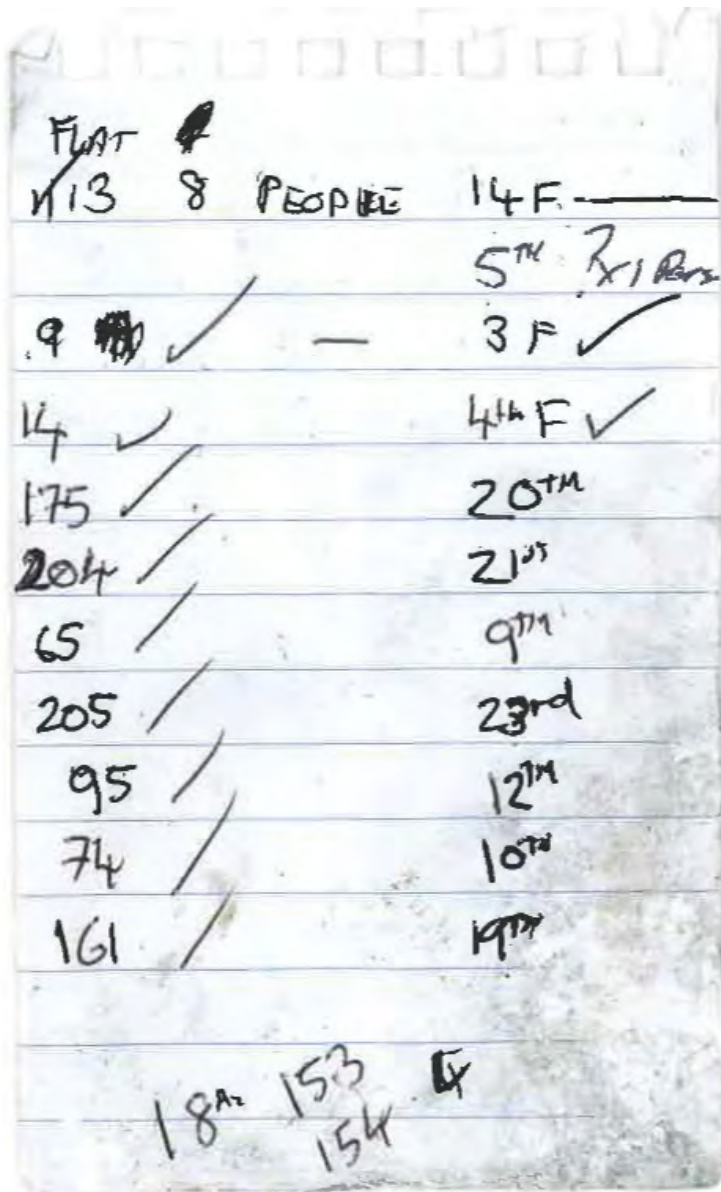 FLAT
113 8 PEOPLE 14F.
5TH 1
9 ✓ — 3 F ✓
14 ✓ 4th F ✓
175 ✓ 20TH
204 / 21st
65 / 9TH
205 / 23rd
95 / 12TH
74 / 10TH
161 / 19TH
18 153
154